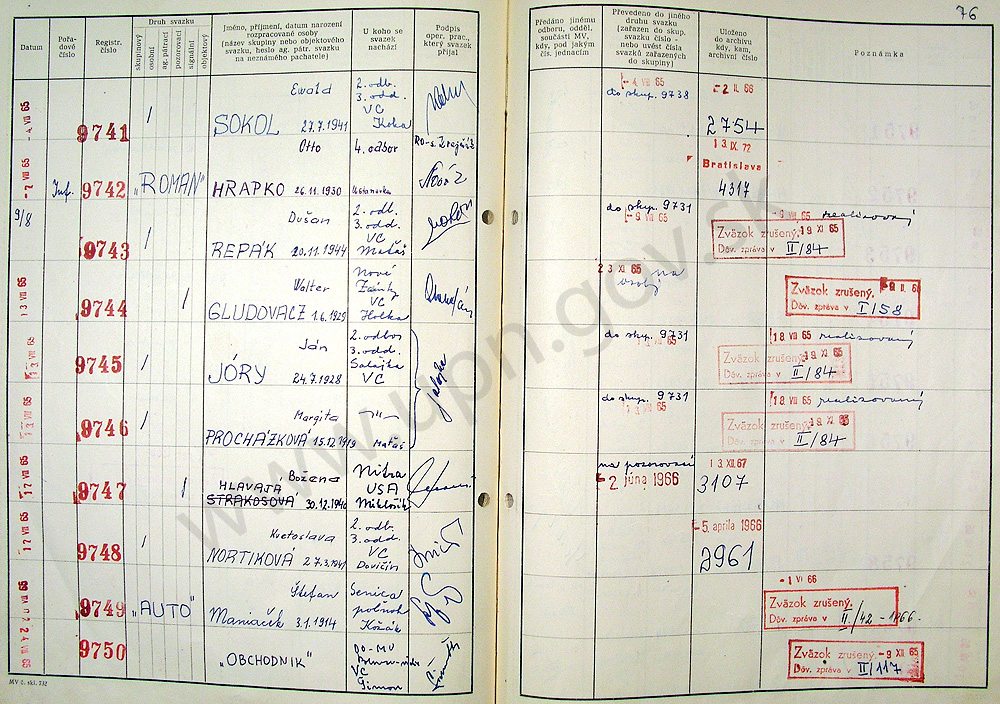 76
Datum
Pořadové číslo
Registr. číslo
Druh svazku
skupinový
osobní
ag. pátrací
pozorovací
signální
objektový
Jméno, příjmení, datum narození
rozpracované osoby
(název skupiny nebo objektového
svazku, heslo ag. pátr. svazku
na neznámého pachatele)
U koho se
svazek
nachází
Podpis
oper. prac.,
který svazek
přijal
Předáno jinému
odboru, odděl.
součásti MV,
kdy, pod jakým
čís. jednacím
Převedeno do jiného
druhu svazku
(zařazen do skup.
svazku číslo -
nebo uvést čísla
svazků zařazených
do skupiny)
Uloženo
do archivu
kdy, kam,
archivní číslo
Poznámka
-4 VIII 65
9741
Ewald
SOKOL 27.7.1941
2. odb.
3. odd.
VC
-4 VIII 65
do skup. 9738
-2 II. 66
2754
-7 VIII 65
Inf.
9742
„ROMAN"
Otto
HRAPKO 26.11.1930
4. odbor
13. IX. 72
Bratislava
4317
9/8
9743
Dušan
REPÁK 20.11.1944
2. odb.
3. odd.
VC
Mataš
do skup. 9731
-9 VIII 65
-9 VIII 65 realizovaný
Zväzok zrušený. 19 XI 65
Dôv. zpráva v II/84
13 VIII 65
9744
Walter
GLUDOVACZ 1.6.1929
Nové
Zámky
VC
Holka
23 XI. 65
Zväzok zrušený.
Dôv. zpráva v I/58
13 VIII 65
9745
Ján
JÓRY 24.7.1928
2. odbor
3. odd.
Salajka
VC
do skup. 9731
18 VIII 65 realizovaný
Zväzok zrušený. 19 XI 65
Dôv. zpráva v II/84
13 VIII 65
9746
Margita
PROCHÁZKOVÁ 15.12.1919
Matáš
do skup. 9731
13 VIII 65
18 VIII 65 realizovaný
Zväzok zrušený.
Dôv. zpráva v II/84
17 VIII 65
9747
Božena
HLAVATA
STRAKOSOVÁ 30.12.1940
Nitra
USA
Miklošík
na pozorovací
2 júna 1966
13 XII. 67
3107
17 VIII 65
9748
Kvetoslava
NORTIKOVÁ 27.3.1941
2. odb.
3. odd.
VC
Dovičin
-5. apríla 1966
2961
9749
„AUTO"
Štefan
Maniaček 3.1.1914
Senica
Kožák
-1 VI 66
Zväzok zrušený.
Dôv. zpráva v II./42 -1966.
9750
„OBCHODNIK"
VČ
Šimon
Zväzok zrušený -9 XII. 65
Dôv. zpráva v II/117
MV č. skl. 732
www.upn.gov.sk